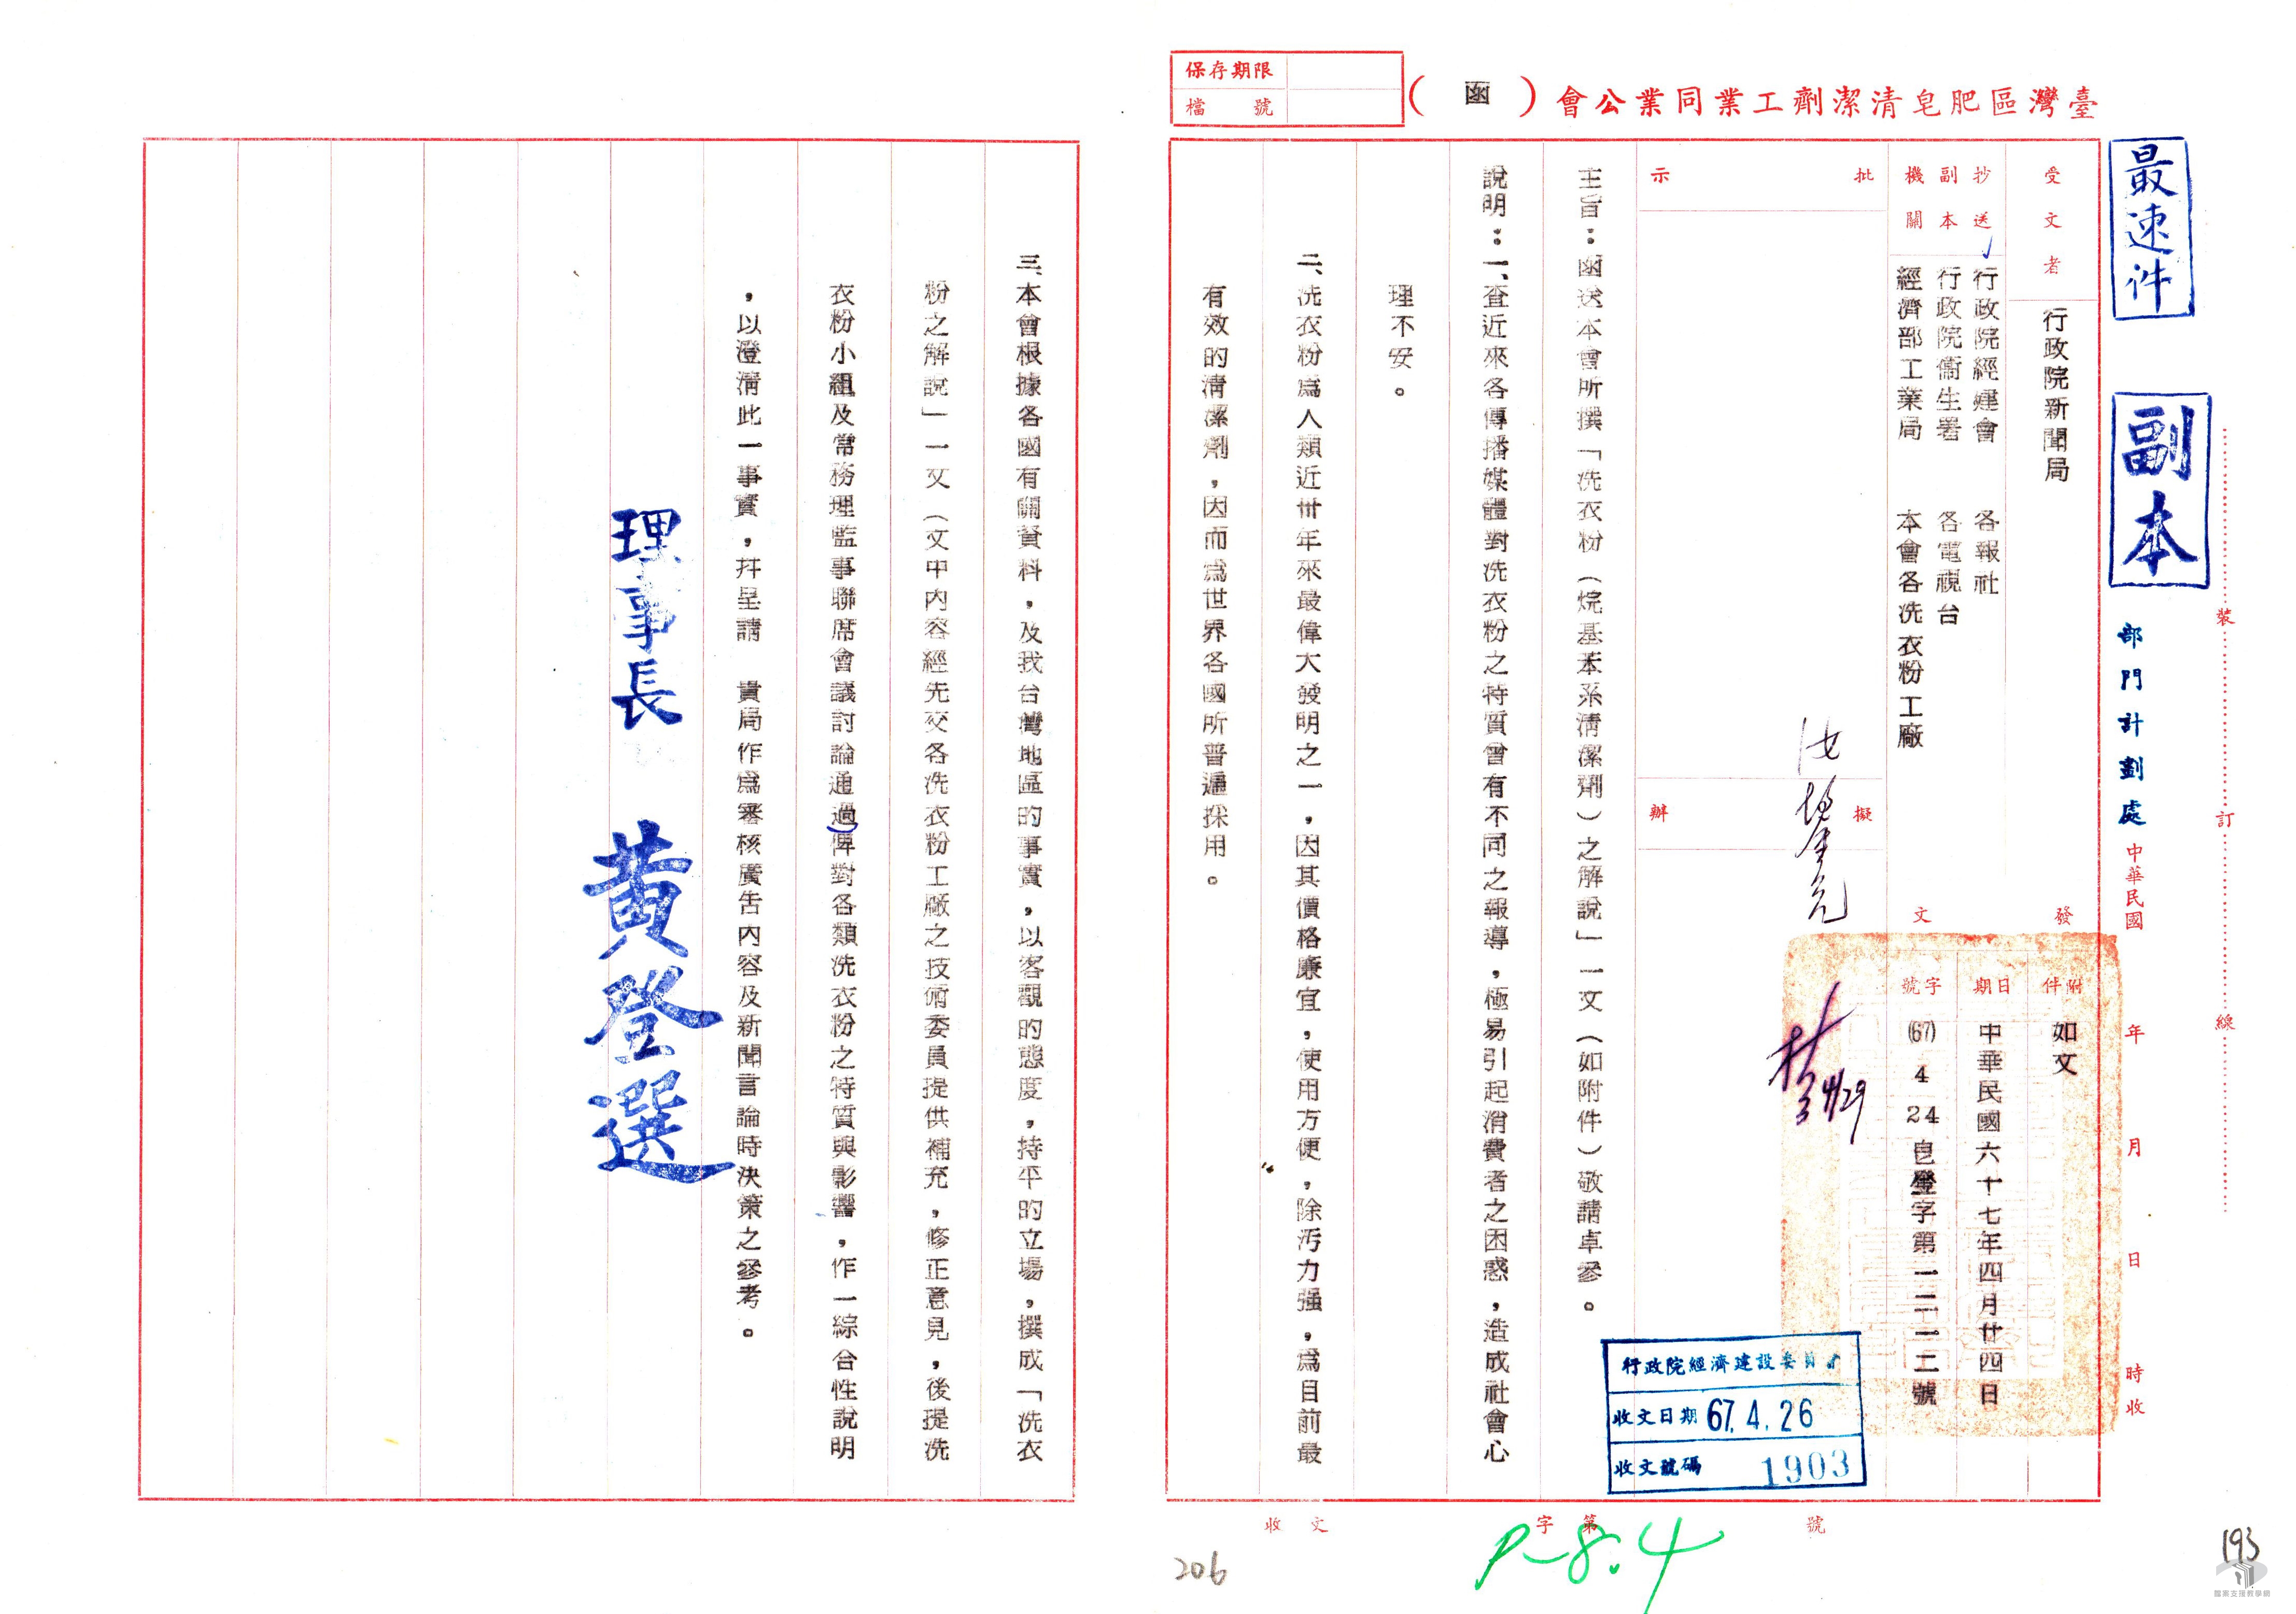 臺灣區肥皂清潔劑工業同業公會（函）
保存期限
檔號
最速件
副本
部門計劃處
中華民國 年 月 日 時收
裝 訂 線
受文者
行政院新聞局
抄送副本機關
行政院經建會 各報社
行政院衞生署 各電視台
經濟部工業局 本會各洗衣粉工廠
發文
附件
如文
日期
中華民國六十七年四月廿四日
字號
(67) 4 24 皂登字第一二一二號
批示
擬辦
4/29
主旨：函送本會所撰「洗衣粉（烷基苯系清潔劑）之解說」一文（如附件）敬請卓參。
說明：一、查近來各傳播媒體對洗衣粉之特質曾有不同之報導，極易引起消費者之困惑，造成社會心
理不安。
二、洗衣粉為人類近卅年來最偉大發明之一，因其價格廉宜，使用方便，除汚力强，為目前最
有效的清潔劑，因而為世界各國所普遍採用。
行政院經濟建設委員會
收文日期 67.4.26
收文號碼 1903
收文 字第 號
P-8.4
206
193
三、本會根據各國有關資料，及我台灣地區的事實，以客觀的態度，持平的立場，撰成「洗衣
粉之解說」一文（文中內容經先交各洗衣粉工廠之技術委員提供補充，修正意見，後提洗
衣粉小組及常務理監事聯席會議討論通過）俾對各類洗衣粉之特質與影響，作一綜合性說明
，以澄清此一事實，幷呈請 貴局作為審核廣告內容及新聞言論時決策之參考。
理事長 黃登選
檔案支援教學網